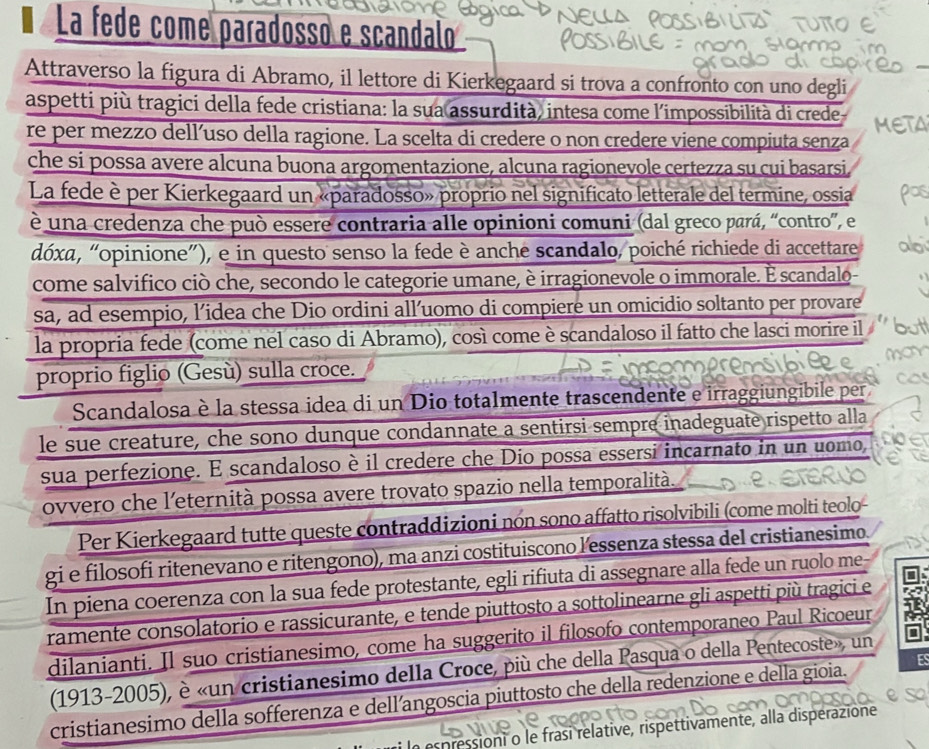 logica → NELLA POSSIBILITÀ TUTTO È
La fede come paradosso e scandalo
POSSIBILE = non siamo in
grado di capirlo
Attraverso la figura di Abramo, il lettore di Kierkegaard si trova a confronto con uno degli
aspetti più tragici della fede cristiana: la sua assurdità, intesa come l'impossibilità di crede-
re per mezzo dell'uso della ragione. La scelta di credere o non credere viene compiuta senza
META
che si possa avere alcuna buona argomentazione, alcuna ragionevole certezza su cui basarsi.
La fede è per Kierkegaard un «paradosso» proprio nel significato letterale del termine, ossia
è una credenza che può essere contraria alle opinioni comuni (dal greco pará, "contro", e
dóxa, "opinione"), e in questo senso la fede è anche scandalo, poiché richiede di accettare
come salvifico ciò che, secondo le categorie umane, è irragionevole o immorale. È scandalo-
sa, ad esempio, l'idea che Dio ordini all'uomo di compiere un omicidio soltanto per provare
la propria fede (come nel caso di Abramo), così come è scandaloso il fatto che lasci morire il
proprio figlio (Gesù) sulla croce.
Scandalosa è la stessa idea di un Dio totalmente trascendente e irraggiungibile per
le sue creature, che sono dunque condannate a sentirsi sempre inadeguate rispetto alla
sua perfezione. E scandaloso è il credere che Dio possa essersi incarnato in un uomo,
ovvero che l'eternità possa avere trovato spazio nella temporalità.
ETERNO
Per Kierkegaard tutte queste contraddizioni non sono affatto risolvibili (come molti teolo-
gi e filosofi ritenevano e ritengono), ma anzi costituiscono l'essenza stessa del cristianesimo.
In piena coerenza con la sua fede protestante, egli rifiuta di assegnare alla fede un ruolo me-
ramente consolatorio e rassicurante, e tende piuttosto a sottolinearne gli aspetti più tragici e
dilanianti. Il suo cristianesimo, come ha suggerito il filosofo contemporaneo Paul Ricoeur
(1913-2005), è «un cristianesimo della Croce, più che della Pasqua o della Pentecoste», un
cristianesimo della sofferenza e dell'angoscia piuttosto che della redenzione e della gioia.
vive il rapporto con Dio con angoscia e
le espressioni o le frasi relative, rispettivamente, alla disperazione